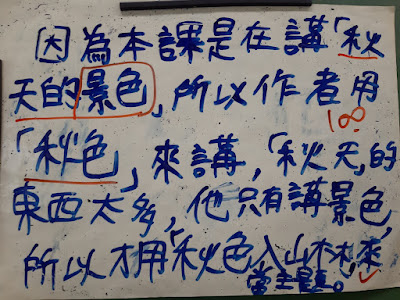 因為本課是在講「秋
天的景色」,所以作者用
100
「秋色」來講,「秋天」的
東西太多,他只有講景色,
所以才用「秋色入山林」來
當主題。